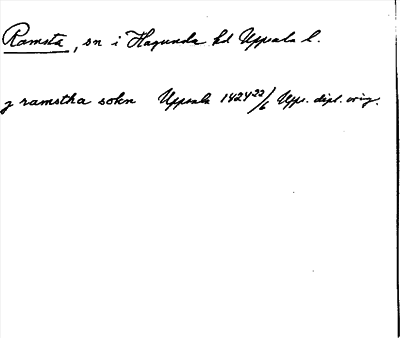 Ramsta, sn i Hagunda hd Uppsala l.
j ramstha sokn Uppsala 1424 22/6 Upps. dipl. orig.